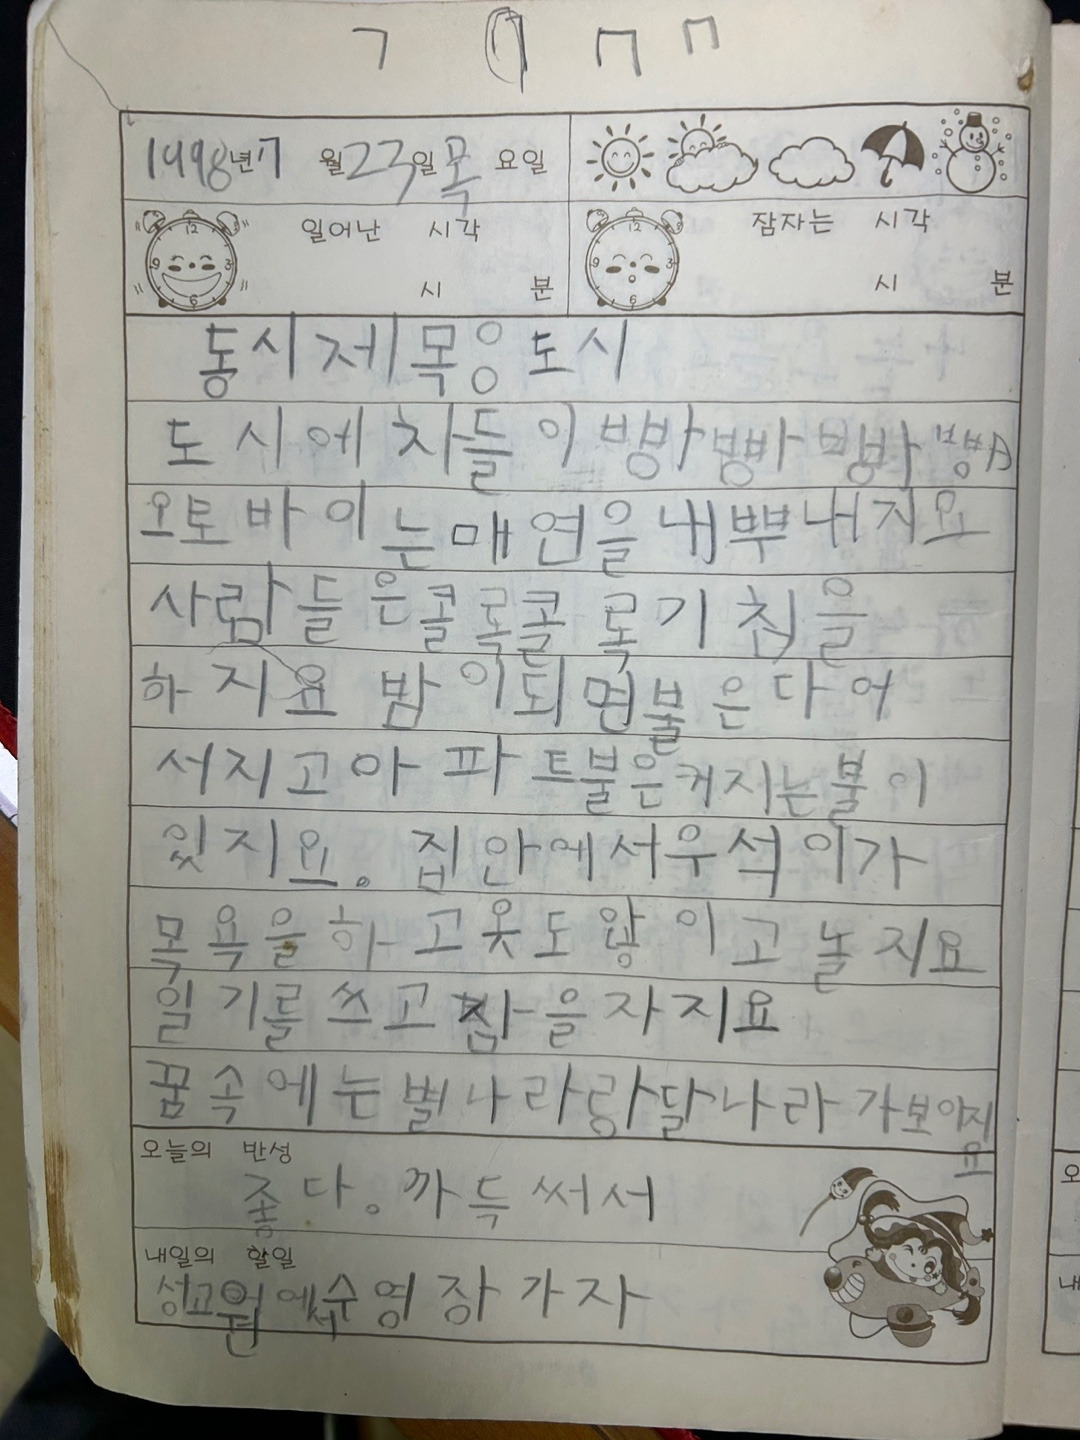 1998년 7 월 23일 목 요일
일어난 시각
시 분
잠자는 시각
시 분
동시 제목은 도시
도시에 차들이 빵빵 빵빵
오토바이는 매연을 내뿌내지요
사람들은 콜록콜록 기침을
하지요 밤이되면 불은 다 어
서지고 아파트불은 커지는 불이
있지요. 집안에서 우석이가
목욕을 하고 옷도 않이고 놀지요
일기를 쓰고 잠을 자지요
꿈속에는 별나라랑 달나라 가보아지
요
오늘의 반성
좋다. 까득 써서
내일의 할일
성고원에서 수영장 가자